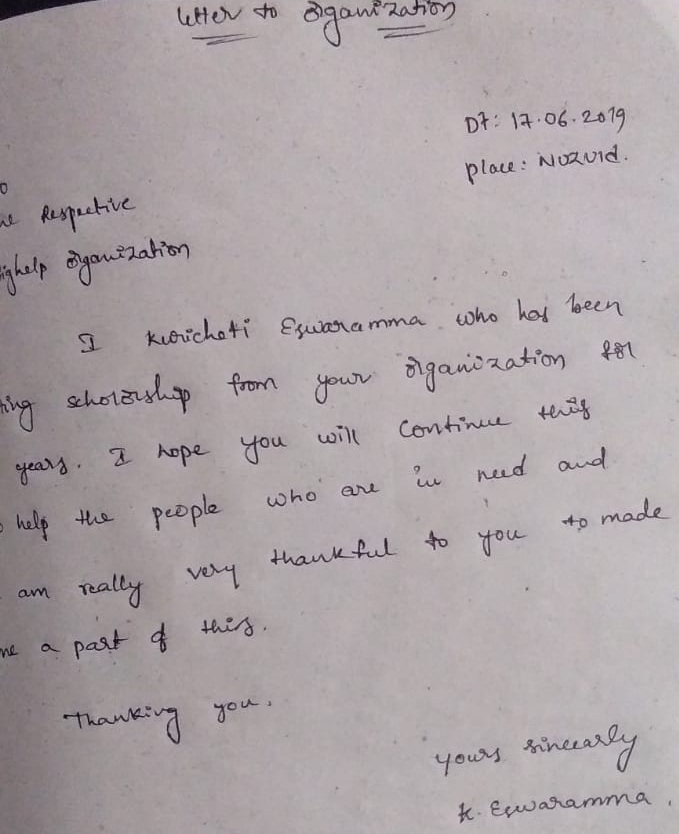 letter to organization
Dt: 17.06.2019
place: Nuzvid.
Respective
organization
I Kuricheti Eswaramma who has been
scholorship from your organization for
years. I hope you will continue this
help the people who are in need and
am really very thankful to you to made
a part of this.
Thanking you.
yours sincearly
k. Eswaramma.